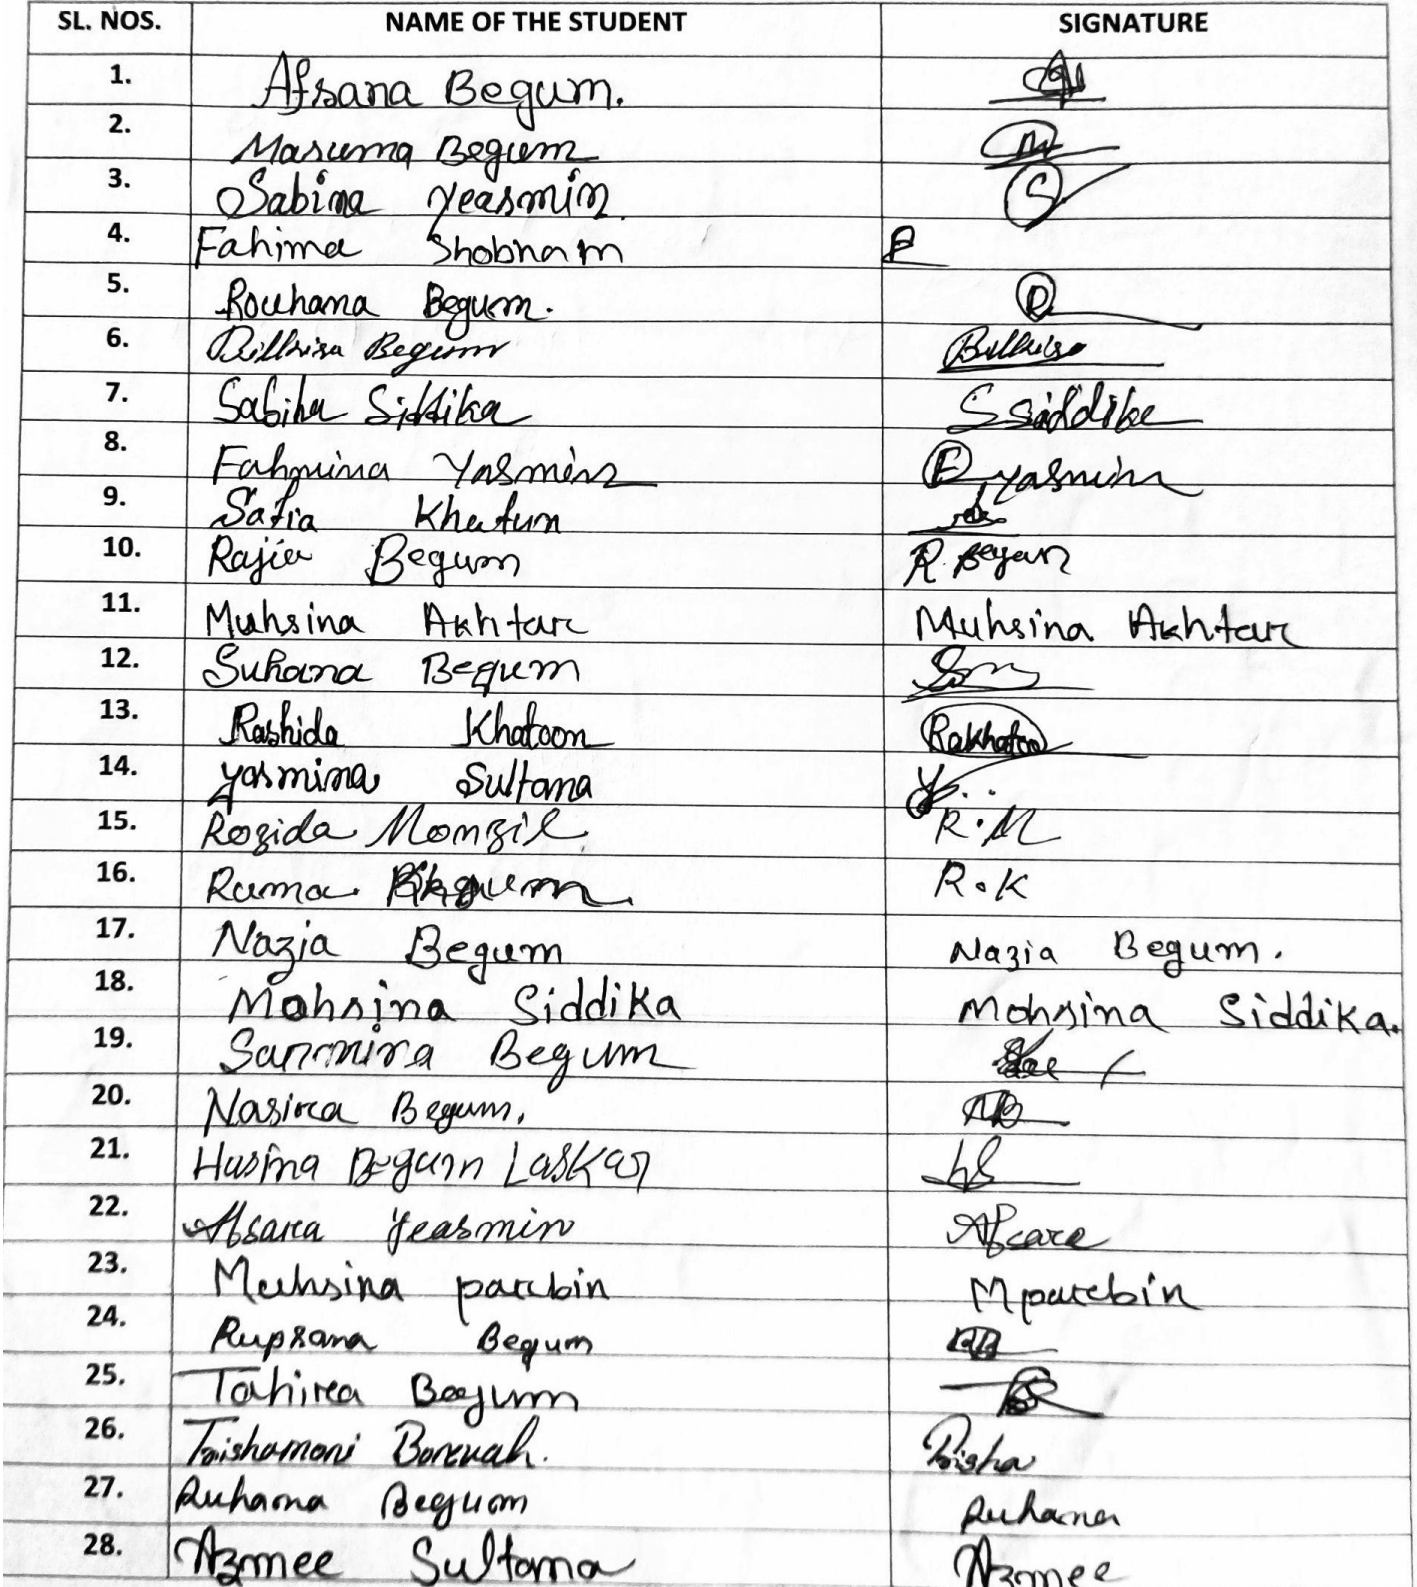 SL. NOS. NAME OF THE STUDENT SIGNATURE
1. Afsana Begum.
2. Masuma Begum
3. Sabina Yeasmin S
4. Fahima Shobnam F
5. Rouhana Begum. R
6. Bilkisa Begum Bilkisa
7. Sabiha Siddika S siddika
8. Fahmina Yasmin F yasmin
9. Safia Khatun
10. Rajia Begum R. Begum
11. Muhsina Akhtar Muhsina Akhtar
12. Suhana Begum
13. Rashida Khatoon Rakhatoo
14. Yasmina Sultana
15. Rozida Monzil R.M
16. Ruma Begum. R.K
17. Nazia Begum Nazia Begum.
18. Mohsina Siddika Mohsina Siddika.
19. Sanmira Begum
20. Nasira Begum. NB
21. Husina Begum Laskar
22. Absara Yeasmin
23. Muhsina parbin M parbin
24. Rupsana Begum RB
25. Tahira Begum
26. Trishamoni Boruah. Trisha
27. Ruhana Begum Ruhana
28. Azmee Sultana Azmee